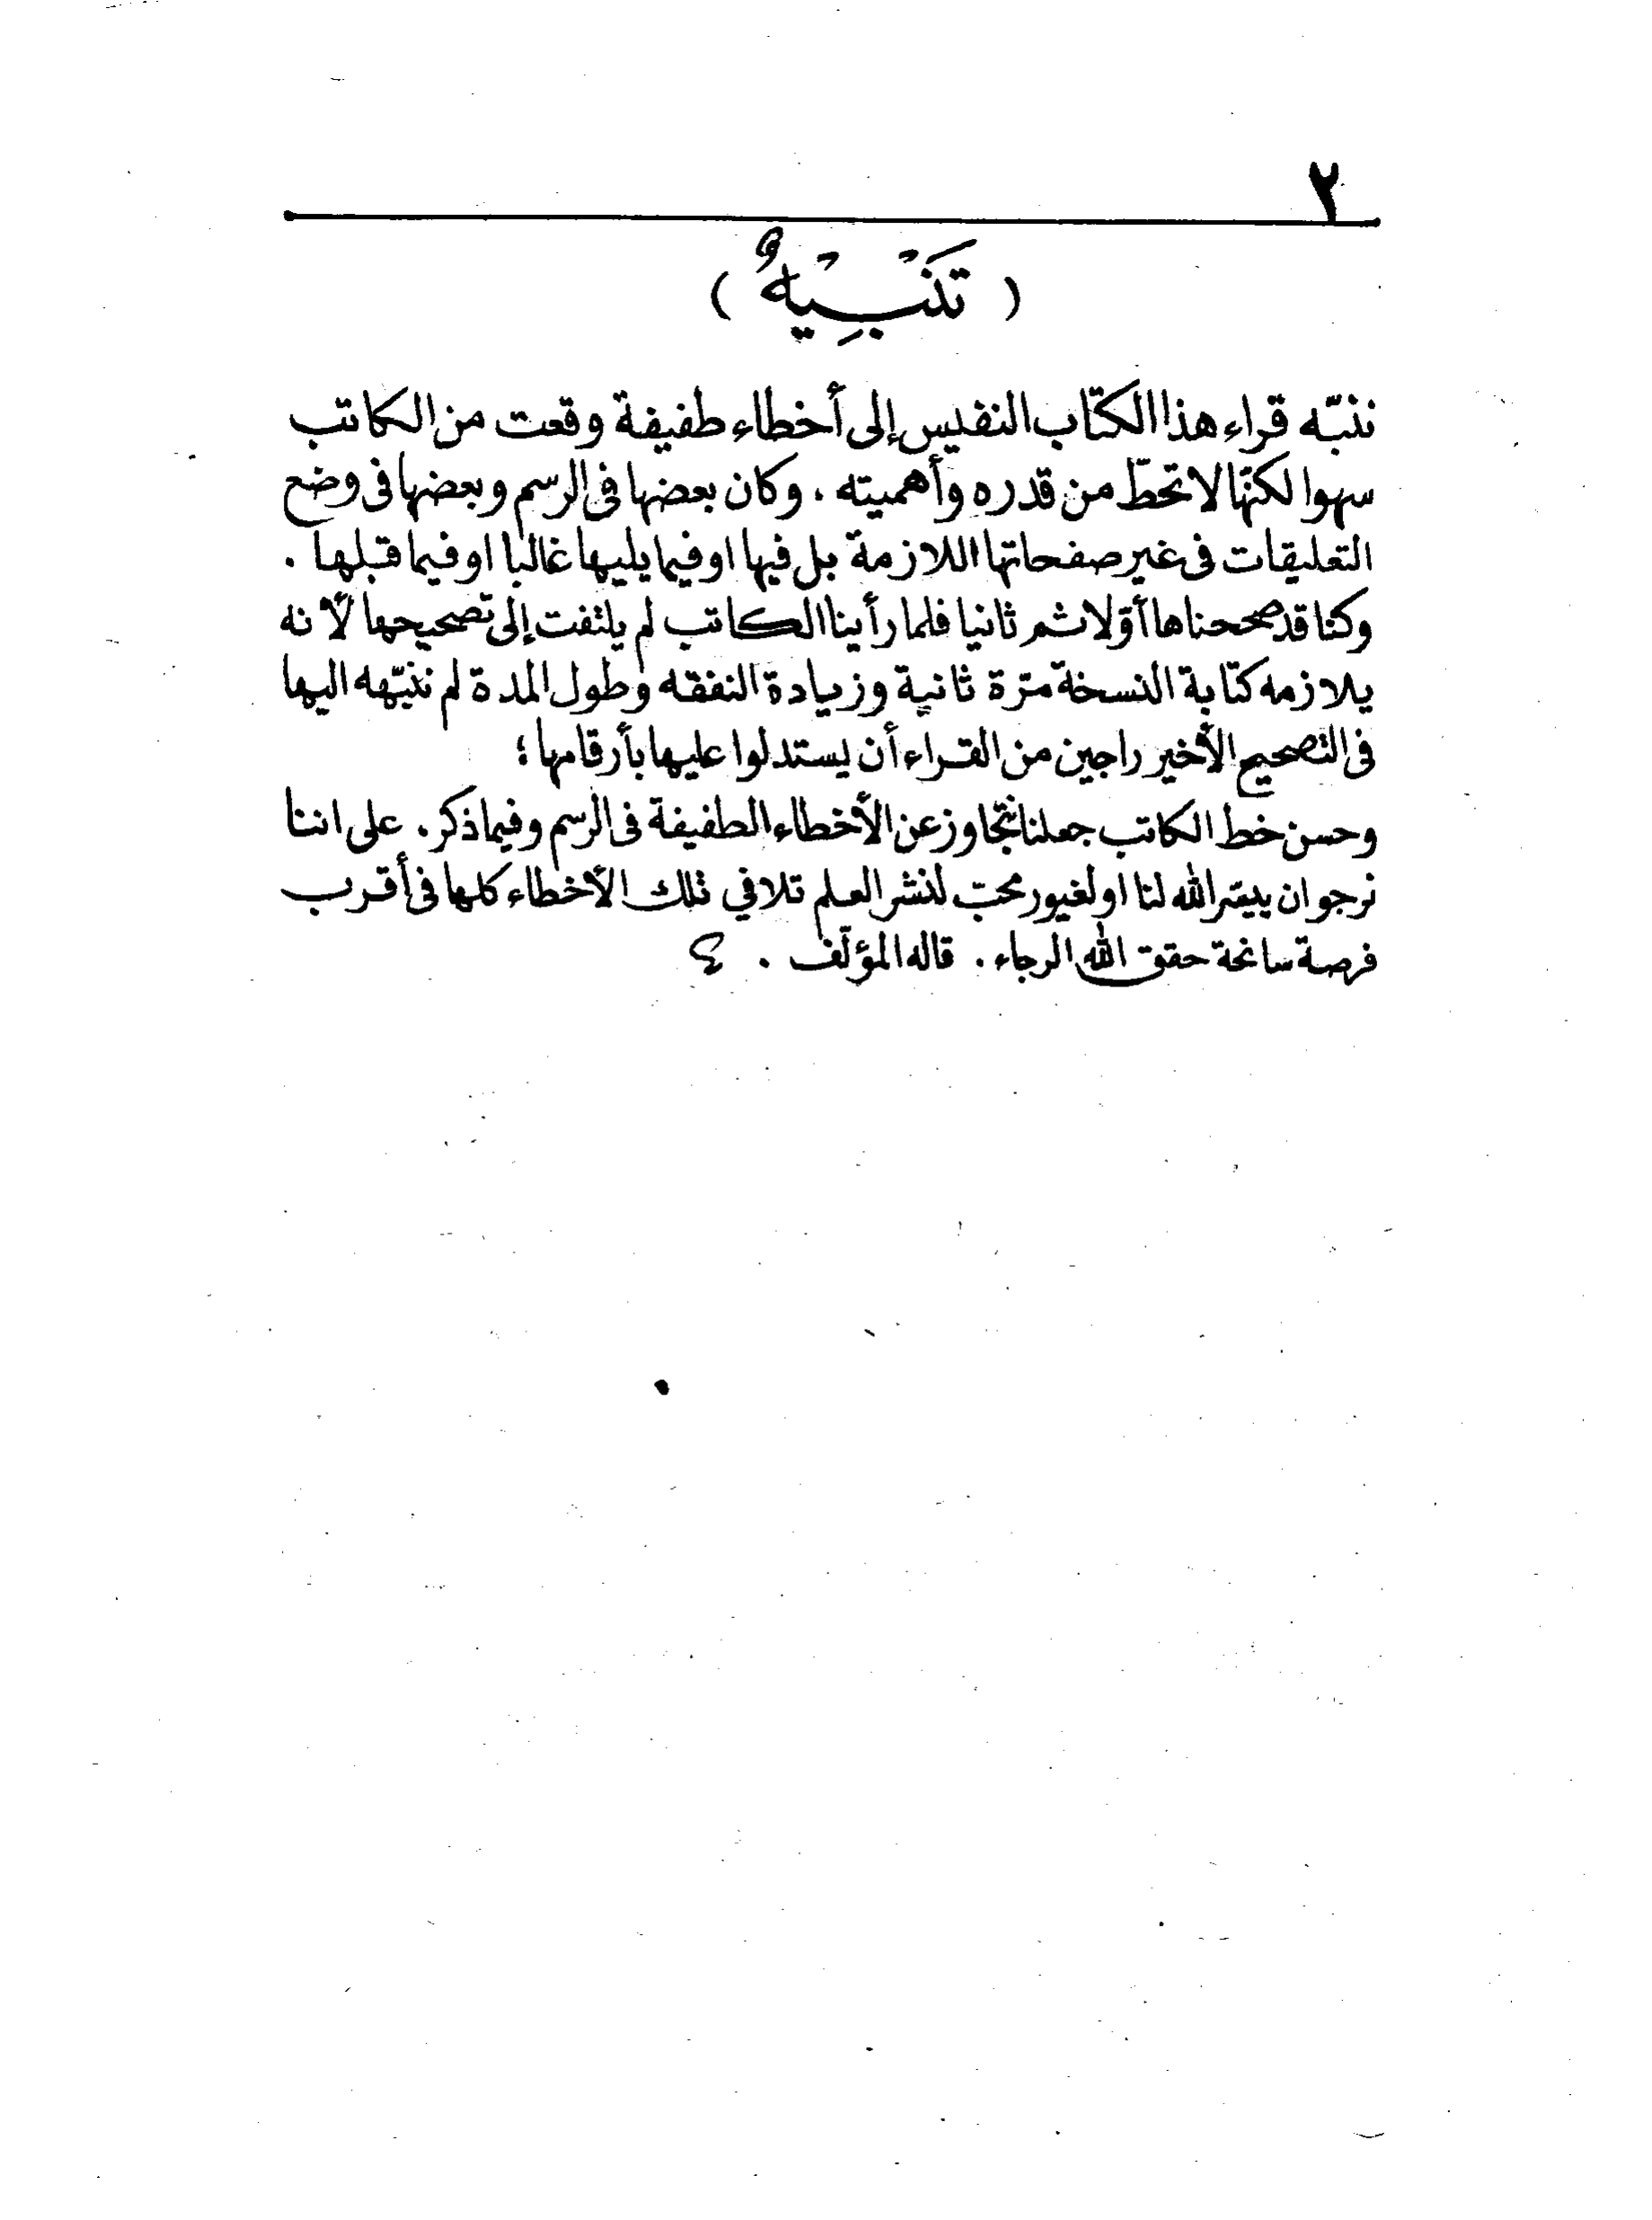 ٢
( تَنْبِيْهٌ )
ننبّه قراء هذا الكتاب النفيس إلى أخطاء طفيفة وقعت من الكاتب
سهوا لكنّها لا تحطّ من قدره وأهميته . وكان بعضها فى الرسم وبعضها فى وضع
التعليقات فى غير صفحاتها اللازمة بل فيها او فيما يليها غالبا او فيما قبلها .
وكنا قد صححناها أوّلا ثم ثانيا فلما رأينا الكاتب لم يلتفت إلى تصحيحها لأنه
يلازمه كتابة النسخة مرّة ثانية وزيادة النفقه وطول المدة لم ننبّهه اليها
فى التصحيح الأخير راجين من القراء أن يستدلوا عليها بأرقامها ؛
وحسن خط الكاتب جعلنا نتجاوز عن الأخطاء الطفيفة فى الرسم وفيما ذكر . على اننا
نرجو ان ييسّر الله لنا او لغيور محبّ لنشر العلم تلافي تلك الأخطاء كلها فى أقرب
فرصة سانحة حقق الله الرجاء . قاله المؤلّف .